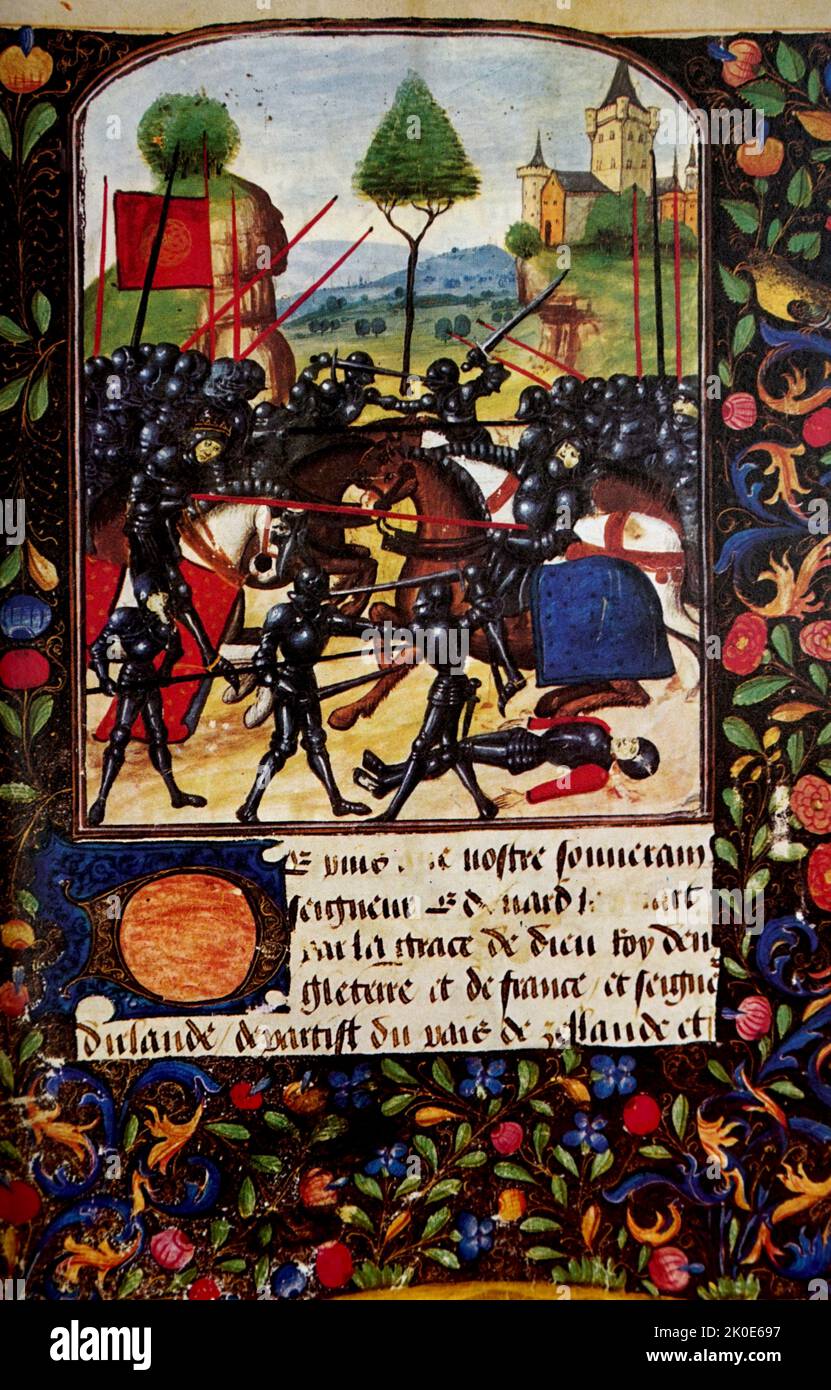 Et puis que nostre souuerain
seigneur Edouard le quart
par la grace de dieu Roy den
gleterre et de france / et seigne
dirlande / departist du pais de zellande et
alamy
Image ID: 2K0E697
www.alamy.com